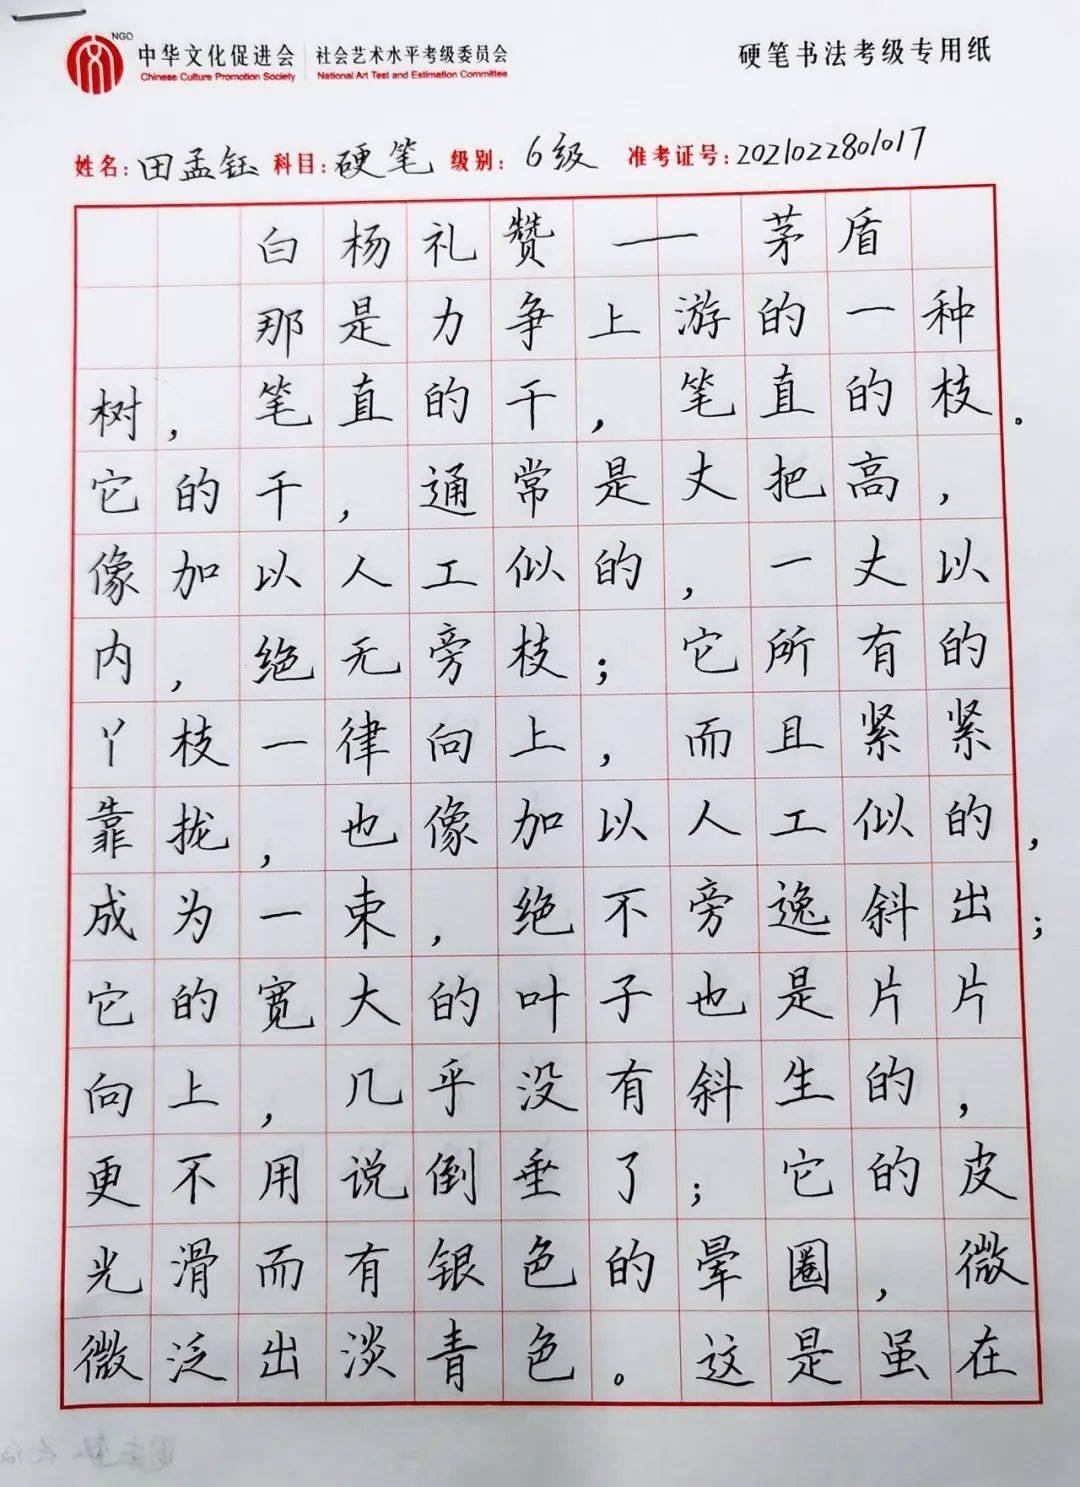 NGO
中华文化促进会 社会艺术水平考级委员会 硬笔书法考级专用纸
Chinese Culture Promotion Society National Art Test and Estimation Committee
姓名:田孟钰 科目:硬笔 级别:6级 准考证号:2021022801017
白杨礼赞——茅盾
那是力争上游的一种
树,笔直的干,笔直的枝。
它的干,通常是丈把高,
像加以人工似的,一丈以
内,绝无旁枝;它所有的
丫枝一律向上,而且紧紧
靠拢,也像加以人工似的,
成为一束,绝不旁逸斜出;
它的宽大的叶子也是片片
向上,几乎没有斜生的,
更不用说倒垂了;它的皮
光滑而有银色的晕圈,微
微泛出淡青色。这是虽在